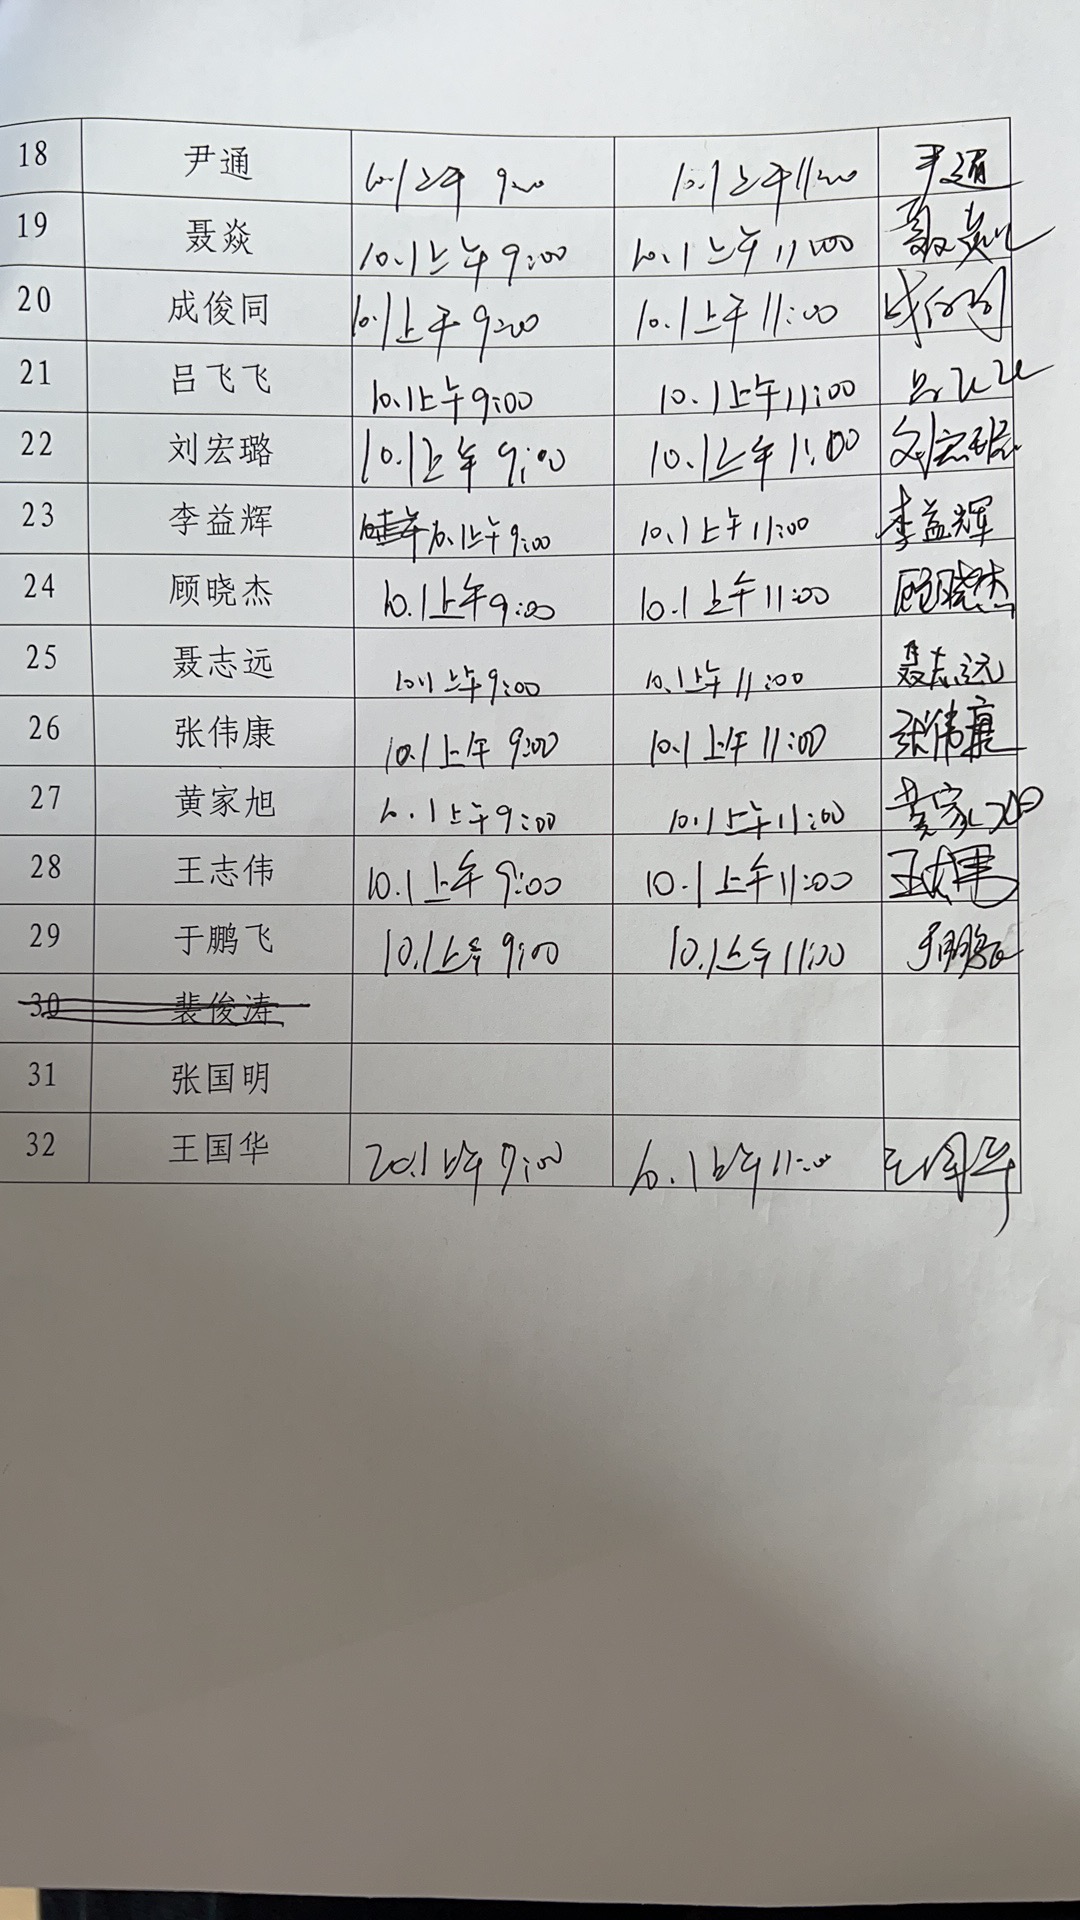 18 尹通 10.1上午 9:00 10.1上午11:00 尹通
19 聂焱 10.1上午9:00 10.1上午11:00 聂焱
20 成俊同 10.1上午9:00 10.1上午11:00 成俊同
21 吕飞飞 10.1上午9:00 10.1上午11:00 吕飞飞
22 刘宏璐 10.1上午9:00 10.1上午11:00 刘宏璐
23 李益辉 10.1上午9:00 10.1上午11:00 李益辉
24 顾晓杰 10.1上午9:00 10.1上午11:00 顾晓杰
25 聂志远 10.1上午9:00 10.1上午11:00 聂志远
26 张伟康 10.1上午9:00 10.1上午11:00 张伟康
27 黄家旭 10.1上午9:00 10.1上午11:00 黄家旭
28 王志伟 10.1上午9:00 10.1上午11:00 王志伟
29 于鹏飞 10.1上午9:00 10.1上午11:00 于鹏飞
30 裴俊涛
31 张国明
32 王国华 10.1上午11:00 王国华